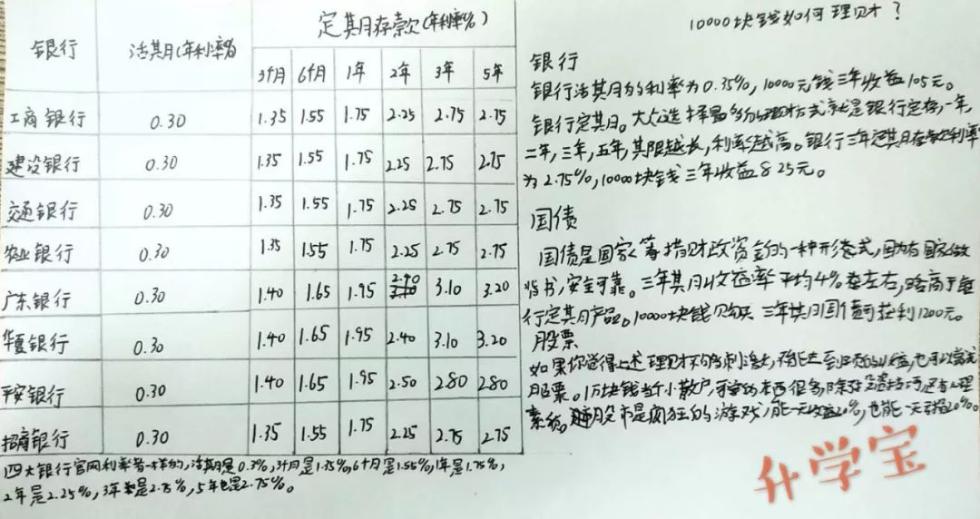 银行 活期(年利率%) 定期存款(年利率%)
3个月 6个月 1年 2年 3年 5年
工商银行 0.30 1.35 1.55 1.75 2.25 2.75 2.75
建设银行 0.30 1.35 1.55 1.75 2.25 2.75 2.75
交通银行 0.30 1.35 1.55 1.75 2.25 2.75 2.75
农业银行 0.30 1.35 1.55 1.75 2.25 2.75 2.75
广东银行 0.30 1.40 1.65 1.95 2.40 3.10 3.20
华夏银行 0.30 1.40 1.65 1.95 2.40 3.10 3.20
平安银行 0.30 1.40 1.65 1.95 2.50 2.80 2.80
招商银行 0.30 1.35 1.55 1.75 2.25 2.75 2.75
四大银行官网利率是一样的,活期是0.3%,3个月是1.35%,6个月是1.55%,1年是1.75%,
2年是2.25%,3年是2.75%,5年也是2.75%。
10000块钱如何理财?
银行
银行活期的利率为0.35%,10000元钱三年收益105元。
银行定期。大众选择最多的理财方式就是银行定存,一年,
二年,三年,五年,其限越长,利率越高。银行三年定期存款利率
为2.75%,10000块钱三年收益825元。
国债
国债是国家筹措财政资金的一种形式,因为有国家做
背书,安全可靠。三年期收益率平均4%左右,略高于银
行定期产品。10000块钱购买三年期国债可获利1200元。
股票
如果你觉得上述理财不够刺激,也可以尝试
股票。1万块钱当个小散户,可学的东西很多,除
系统。股市是疯狂的游戏,能一天收益10%,也能一天亏损10%。
升学宝